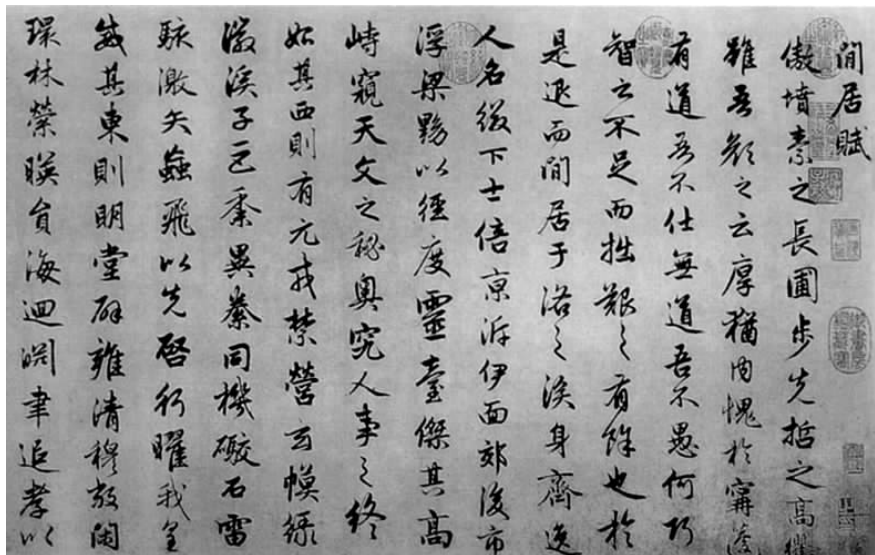 閒居賦
傲墳素之長圃步先哲之高
雖吾顏之云厚猶內愧於甯蘧
有道吾不仕無道吾不愚何巧
智之不足而拙艱之有餘也於
是退而閒居于洛之涘身齊逸
人名綴下士倍京泝伊面郊後市
浮梁黝以徑度靈臺傑其高
峙窺天文之秘奧究人事之終
始其西則有元戎禁營玄幙綠
徽溪子巨黍異絭同機礮石雷
駭激矢蝱飛以先啓行曜我皇
威其東則明堂辟雍清穆敞閑
環林縈暎員海迴淵聿追孝以